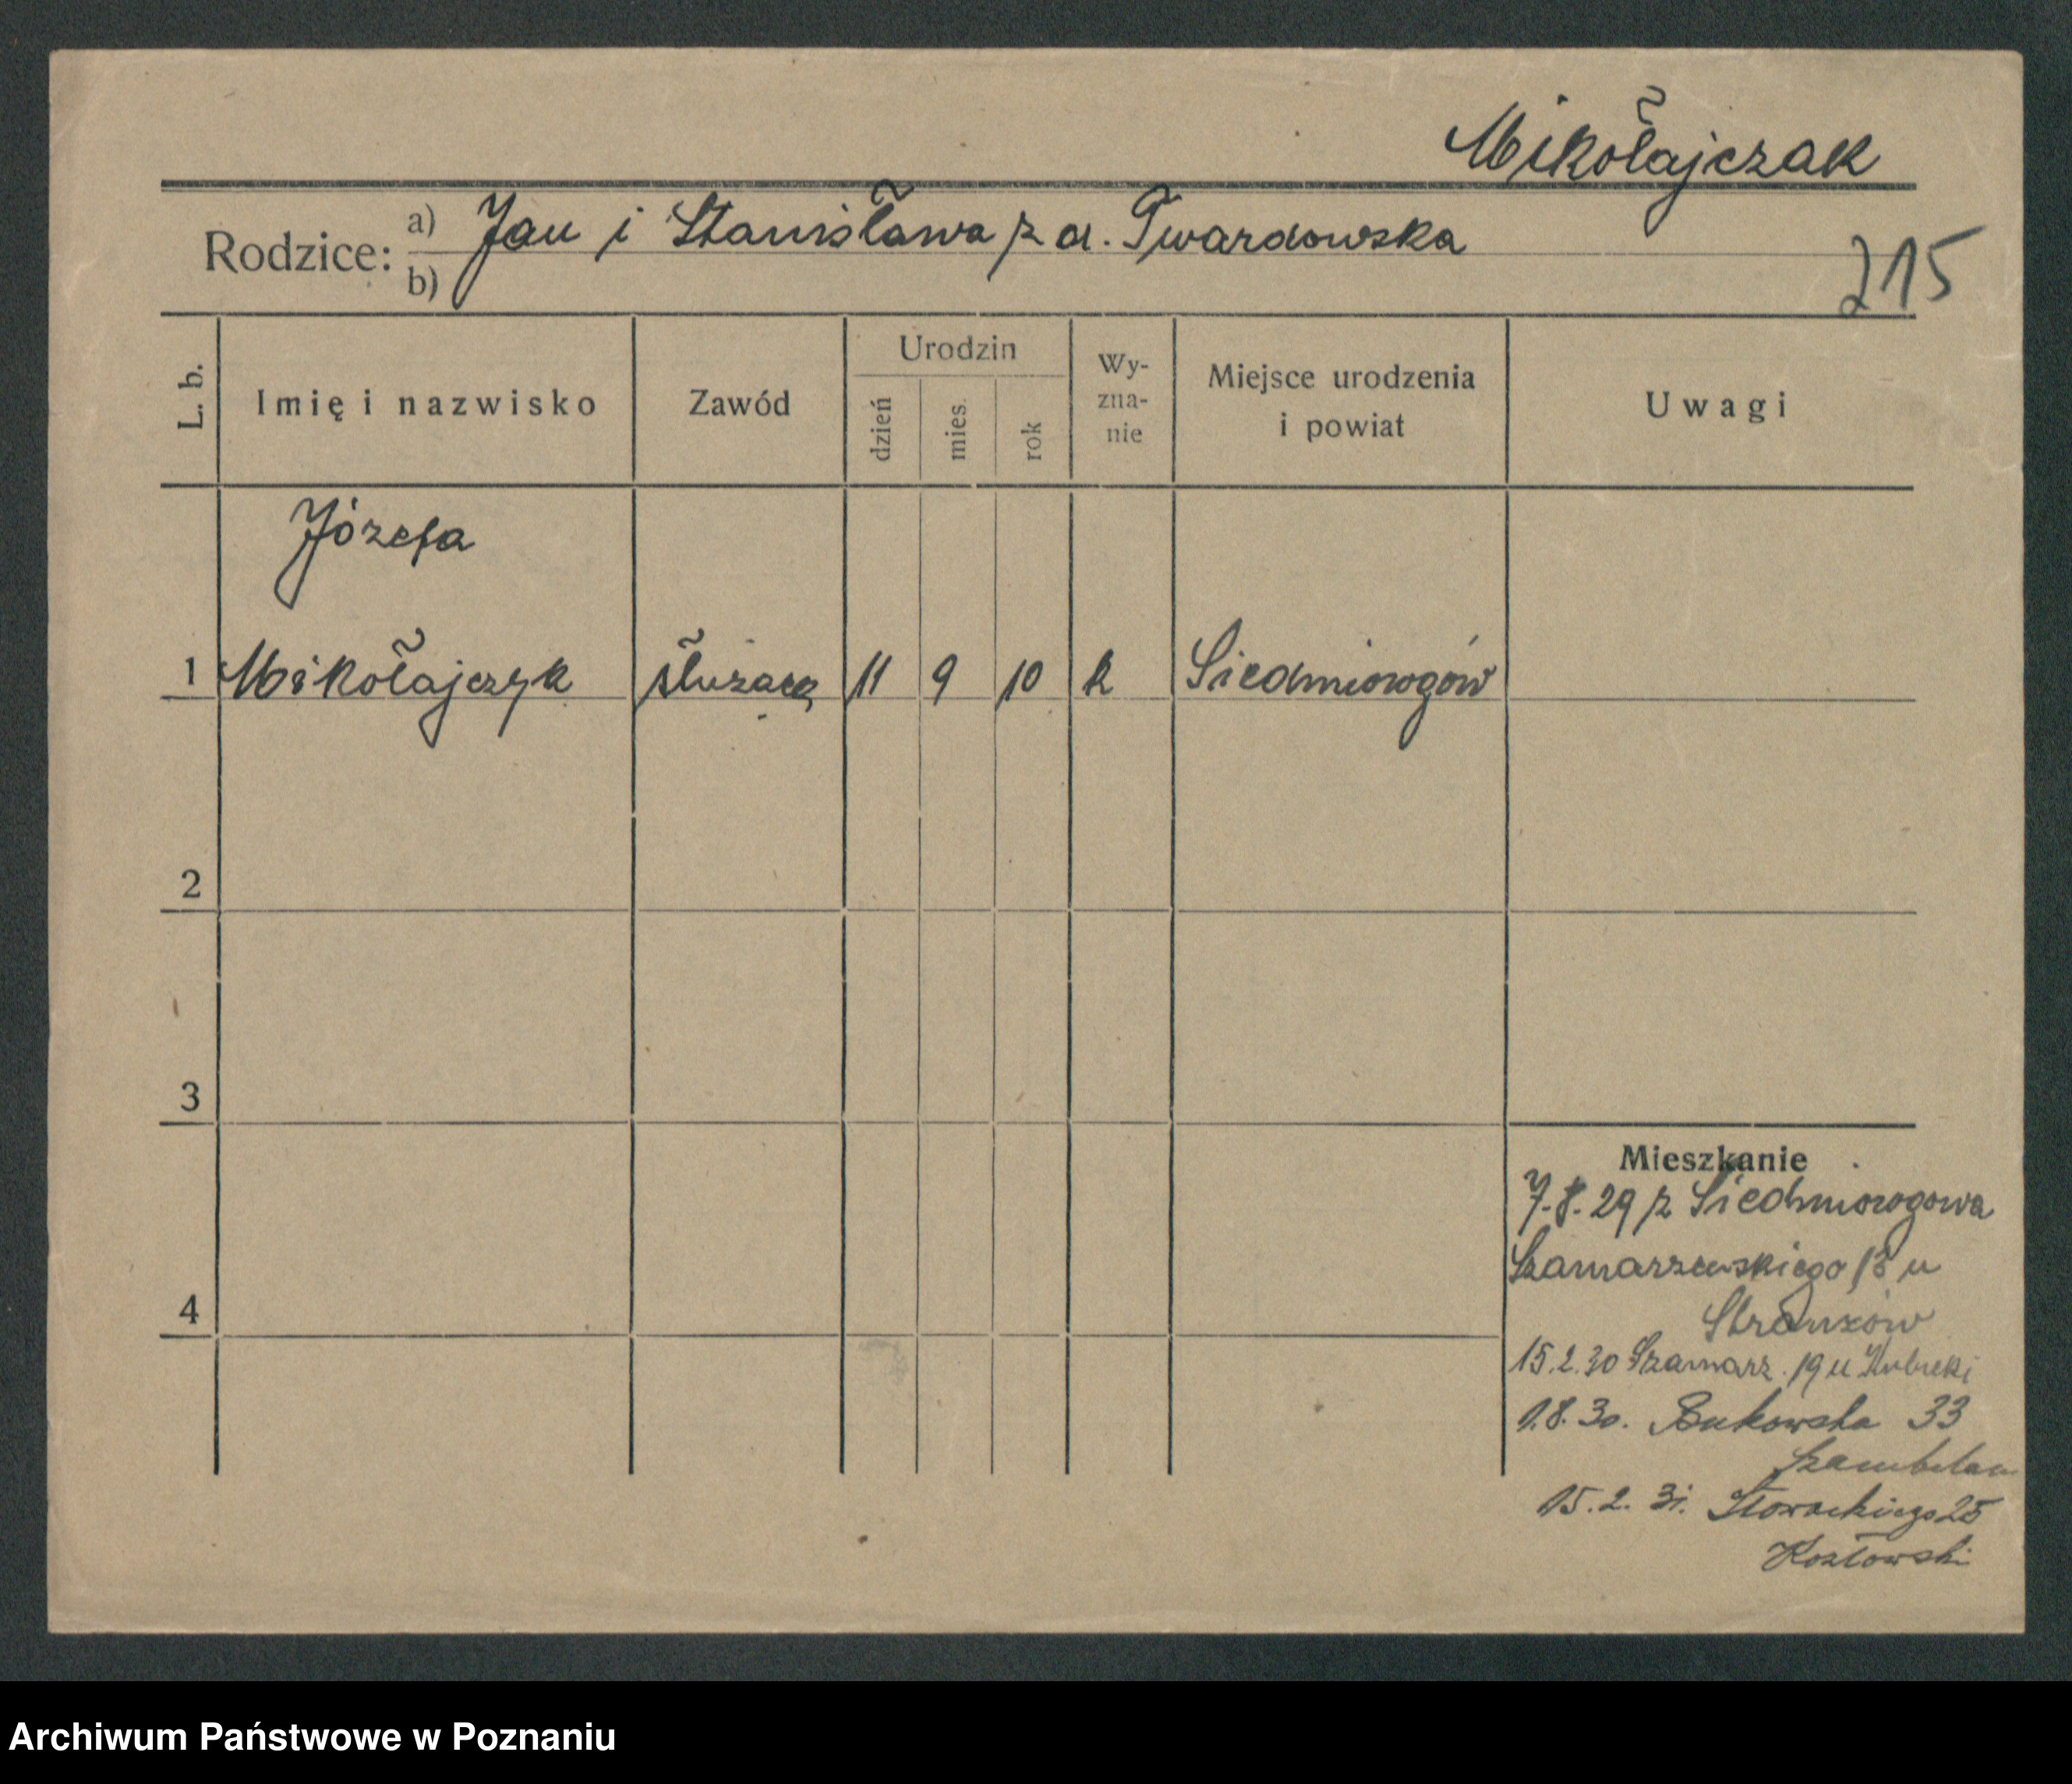 Mikołajczak
Rodzice: a) Jan i Stanisława z d. Twardowska
b)
215
L. b.
Imię i nazwisko
Zawód
Urodzin
dzień
mies.
rok
Wy-
zna-
nie
Miejsce urodzenia
i powiat
Uwagi
Józefa
1 Mikołajczyk służąca 11 9 10 k Siedmiorogów
2
3
4
Mieszkanie
7.8.29 z Siedmiorogowa
Szamarzewskiego 13 u
15.2.30 Szamarz. 19 u Kubicki
1.8.30. Bukowska 33
Szambelan
15.2.31. Słowackiego 25
Kozłowski
Archiwum Państwowe w Poznaniu